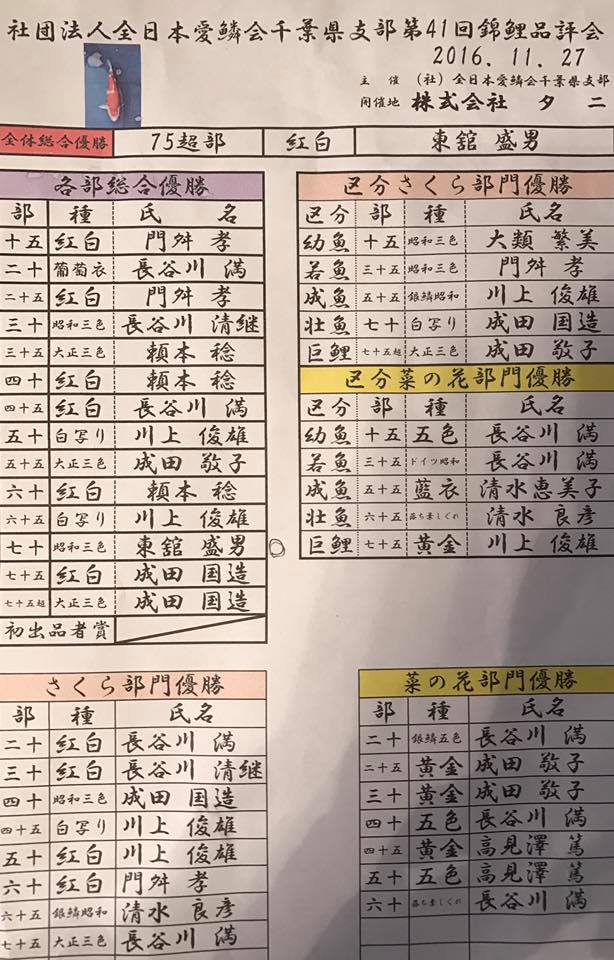 社団法人全日本愛鱗会千葉県支部第41回錦鯉品評会
2016.11.27
主催 (社)全日本愛鱗会千葉県支部
開催地 株式会社 タニ
全体総合優勝 75超部 紅白 東舘 盛男
各部総合優勝
部 種 氏 名
十五 紅白 門舛 孝
二十 葡萄衣 長谷川 満
二十五 紅白 門舛 孝
三十 昭和三色 長谷川 清継
三十五 大正三色 頼本 稔
四十 紅白 頼本 稔
四十五 紅白 長谷川 満
五十 白写り 川上 俊雄
五十五 大正三色 成田 敬子
六十 紅白 頼本 稔
六十五 白写り 川上 俊雄
七十 昭和三色 東舘 盛男
七十五 紅白 成田 国造
七十五超 大正三色 成田 国造
初出品者賞
区分さくら部門優勝
区分 部 種 氏名
幼魚 十五 昭和三色 大類 繁美
若魚 三十五 昭和三色 門舛 孝
成魚 五十五 銀鱗昭和 川上 俊雄
壮魚 七十 白写り 成田 国造
巨鯉 七十五超 大正三色 成田 敬子
区分菜の花部門優勝
区分 部 種 氏名
幼魚 十五 五色 長谷川 満
若魚 三十五 ドイツ昭和 長谷川 満
成魚 五十五 藍衣 清水恵美子
壮魚 六十五 落ち葉しぐれ 清水 良彦
巨鯉 七十五 黄金 川上 俊雄
さくら部門優勝
部 種 氏名
二十 紅白 長谷川 満
三十 紅白 長谷川 清継
四十 昭和三色 成田 国造
四十五 白写り 川上 俊雄
五十 紅白 川上 俊雄
六十 紅白 門舛 孝
六十五 銀鱗昭和 清水 良彦
七十五 大正三色 長谷川 満
菜の花部門優勝
部 種 氏名
二十 銀鱗五色 長谷川 満
二十五 黄金 成田 敬子
三十 黄金 成田 敬子
四十 五色 長谷川 満
四十五 黄金 高見澤 篤
五十 五色 高見澤 篤
六十 落ち葉しぐれ 長谷川 満